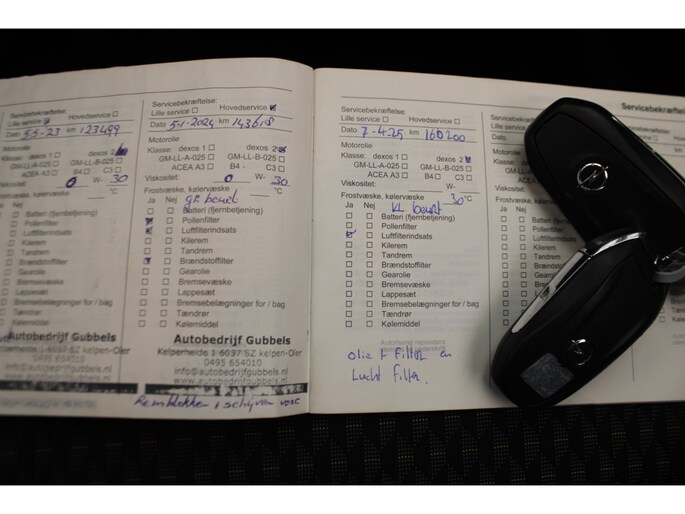 Servicebekræftelse:
Lille service Hovedservice
Dato 5-5-23 km 123499
Motorolie
Klasse: dexos 1 dexos 2
GM-LL-A-025 GM-LL-B-025
ACEA A3 B4 C3
Viskositet: 0 W- 30
Frostvæske, kølervæske °C
Ja Nej
Batteri (fjernbetjening)
Pollenfilter
Luftfilterindsats
Kilerem
Tandrem
Brændstoffilter
Gearolie
Bremsevæske
Lappesæt
Bremsebelægninger for / bag
Tændrør
Kølemiddel
Autobedrijf Gubbels
Kelperheide 1 6037 SZ kelpen-Oler
0495 654010
info@autobedrijfgubbels.nl
www.autobedrijfgubbels.nl
Servicebekræftelse:
Lille service Hovedservice
Dato 5-1-2024 km 143618
Motorolie
Klasse: dexos 1 dexos 2
GM-LL-A-025 GM-LL-B-025
ACEA A3 B4 - C3
Viskositet: 0 W- 30
Frostvæske, kølervæske °C
Ja Nej gr beurt
Batteri (fjernbetjening)
Pollenfilter
Luftfilterindsats
Kilerem
Tandrem
Brændstoffilter
Gearolie
Bremsevæske
Lappesæt
Bremsebelægninger for / bag
Tændrør
Kølemiddel
Autobedrijf Gubbels
Kelperheide 1 6037 SZ kelpen-Oler
0495 654010
info@autobedrijfgubbels.nl
www.autobedrijfgubbels.nl
Remblokken + schijven voor
Servicebekræftelse:
Lille service Hovedservice
Dato 7-4-25 km 160200
Motorolie
Klasse: dexos 1 dexos 2
GM-LL-A-025 GM-LL-B-025
ACEA A3 B4 C3
Viskositet: W-
Frostvæske, kølervæske 30 °C
Ja Nej KL beurt
Batteri (fjernbetjening)
Pollenfilter
Luftfilterindsats
Kilerem
Tandrem
Brændstoffilter
Gearolie
Bremsevæske
Lappesæt
Bremsebelægninger for / bag
Tændrør
Kølemiddel
olie + filter en
Lucht filter.
Servicebekræftelse
Lille service
Dato
Motorolie
Klasse:
Viskositet: